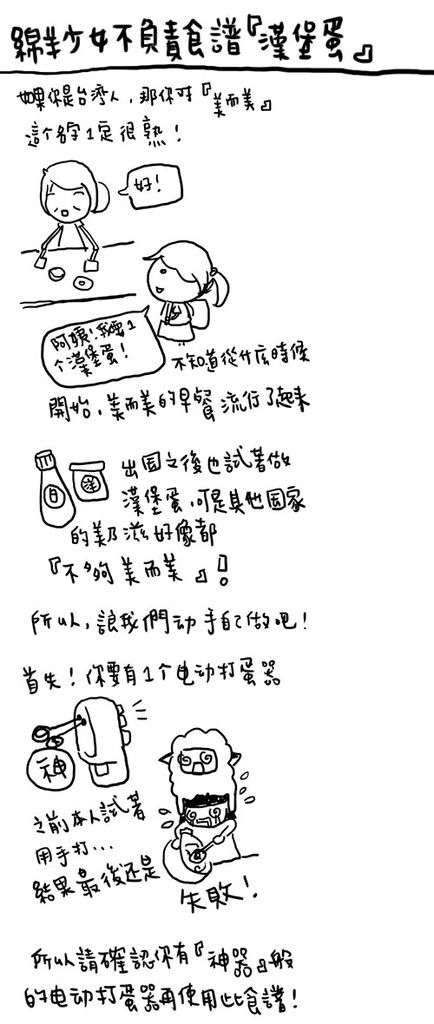 綿羊少女不負責食譜『漢堡蛋』
如果你是台湾人，那你对『美而美』
這个名字1定很熟！
好！
阿姨！我要1
个漢堡蛋！
不知道從什庅時候
開始，美而美的早餐流行了起來
日
洋
出国之後也試著做
漢堡蛋，可是其他囯家
的美乃滋好像都
『不夠美而美』！
所以，讓我們动手自己做吧！
首先！你要有1个电动打蛋器
神
之前本人試著
用手打...
結果最後还是
失敗！
所以請確認你有『神器』般
的电动打蛋器再使用此食譜！